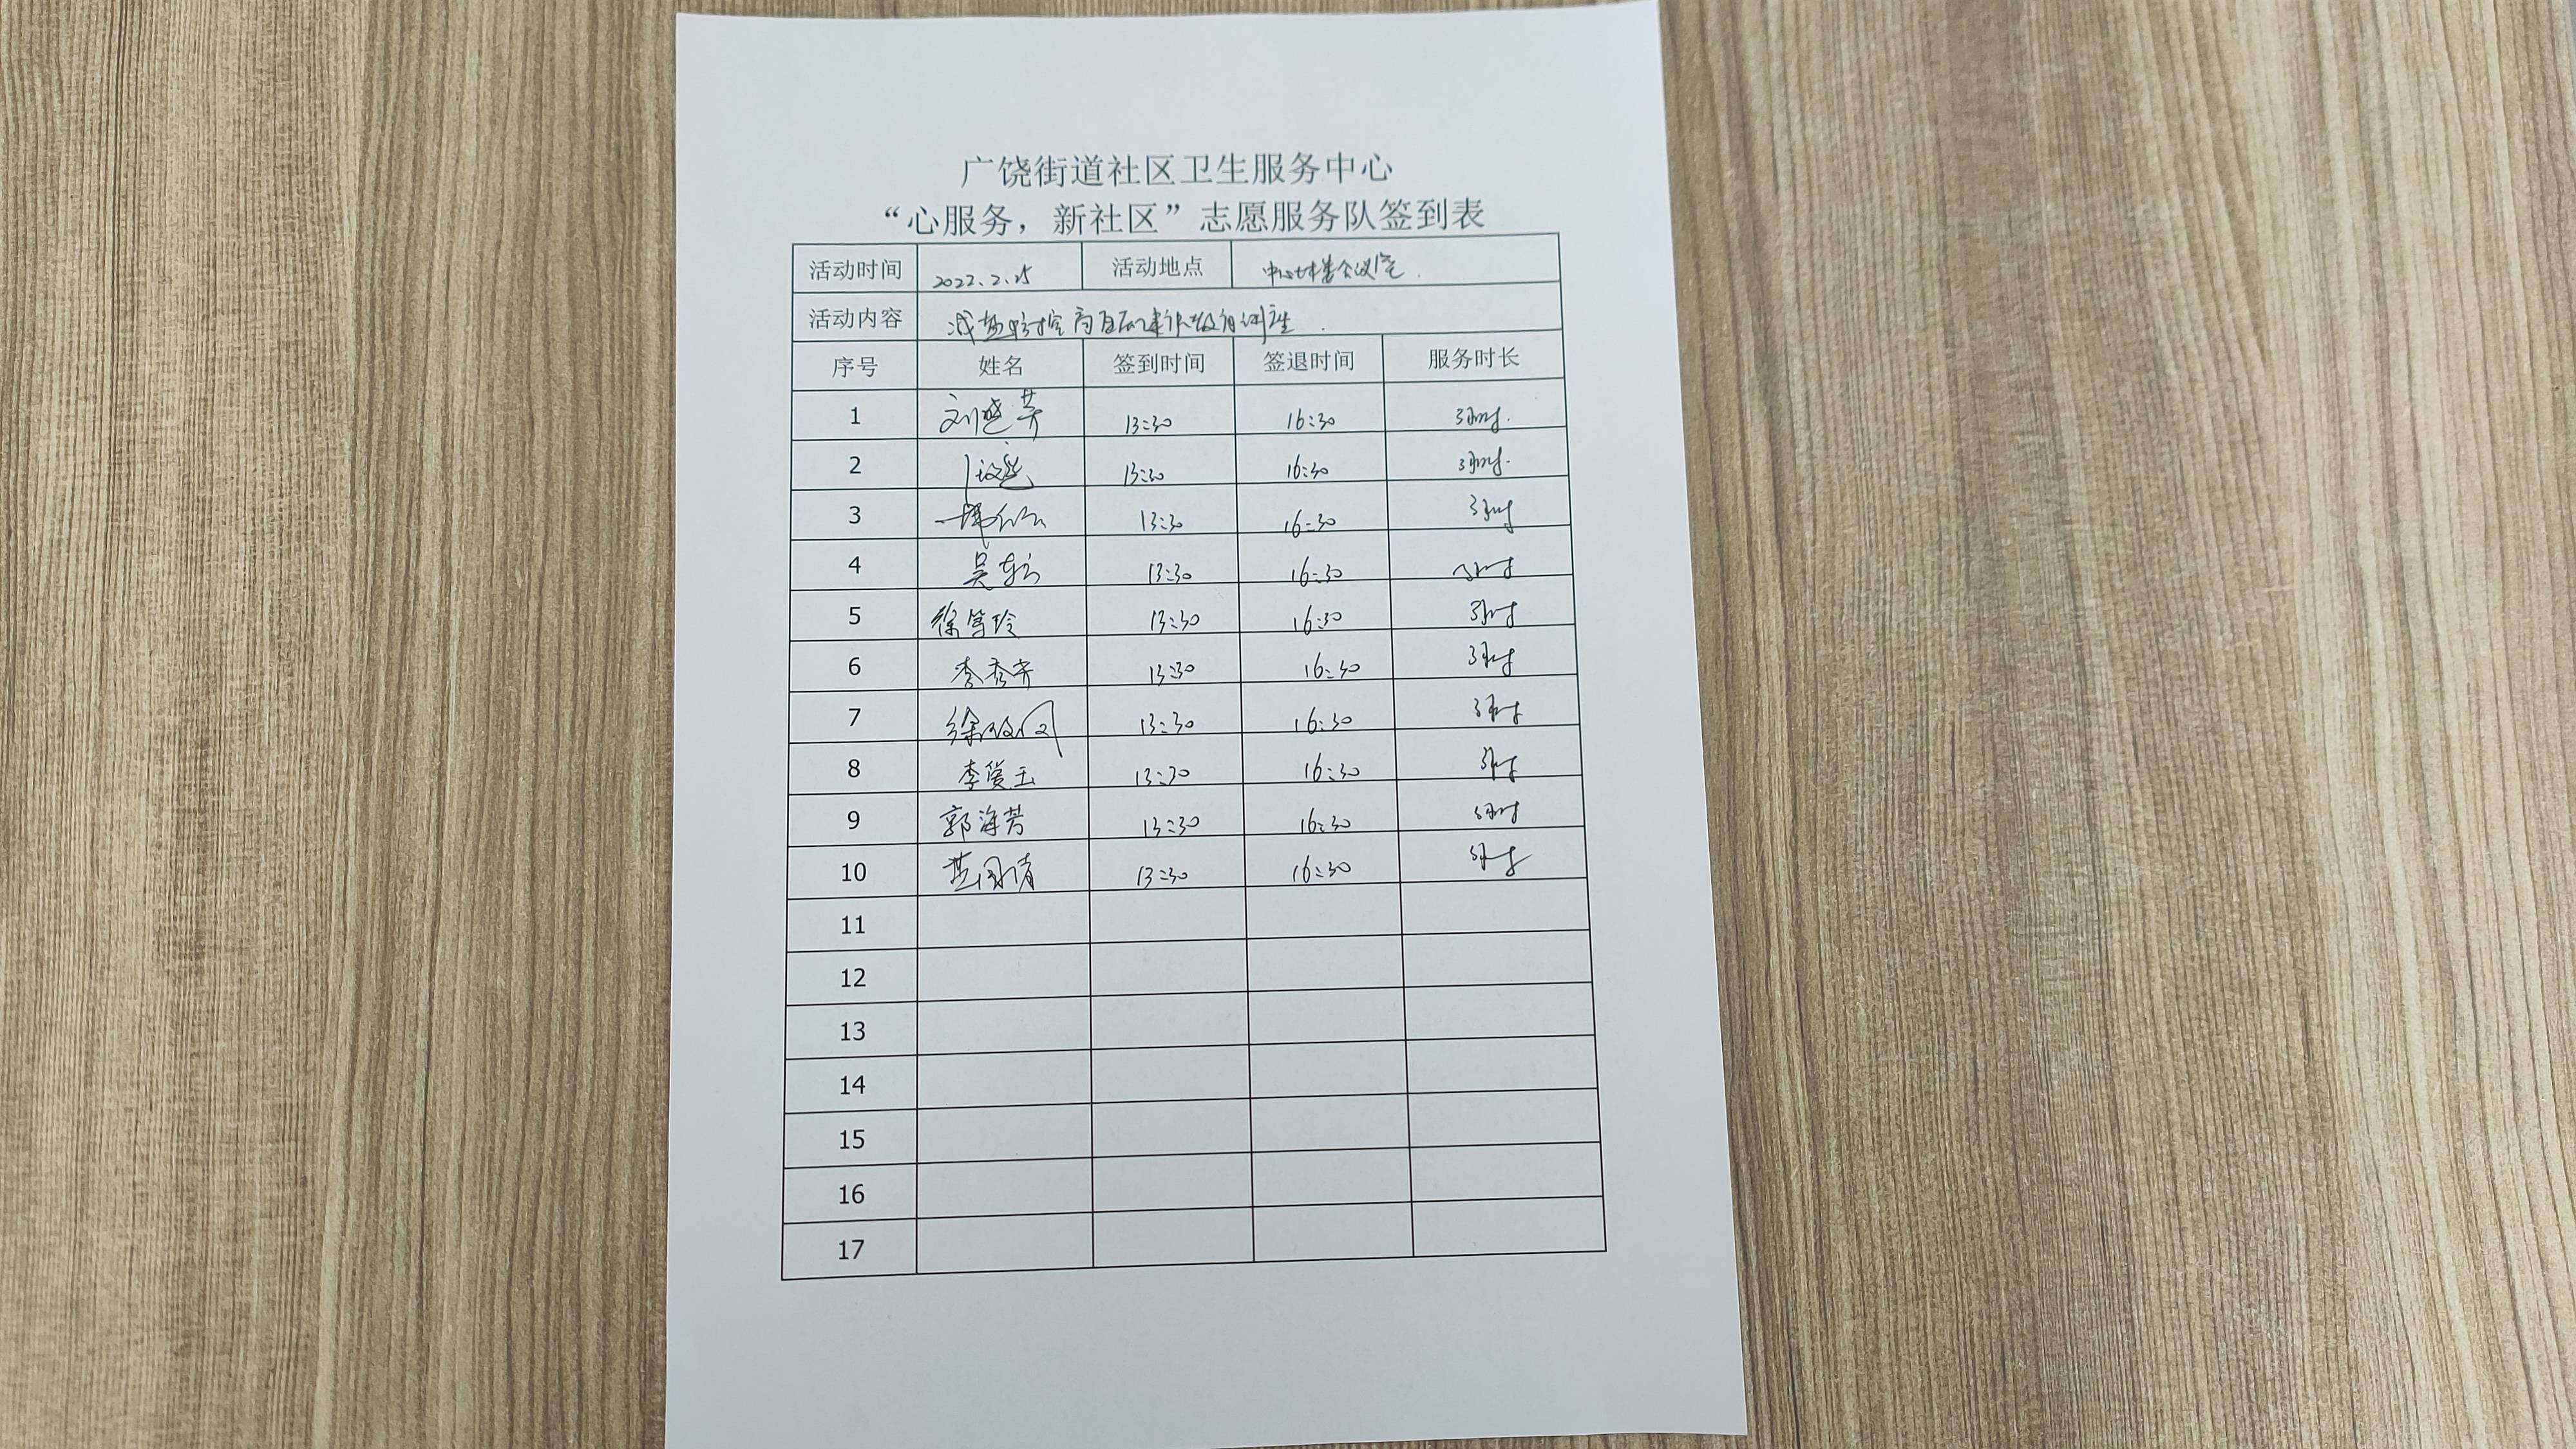 广饶街道社区卫生服务中心
“心服务，新社区”志愿服务队签到表
活动时间 2022.2.25 活动地点 中心七楼会议室.
活动内容 减盐防控高血压
序号 姓名 签到时间 签退时间 服务时长
1 刘 芳 13:30 16:30 3小时.
2 13:30 16:30 3小时.
3 13:30 16:30 3小时
4 吴 13:30 16:30 3小时
5 徐笃玲 13:30 16:30 3小时
6 李秀 13:30 16:30 3小时
7 徐 13:30 16:30 3小时
8 李 玉 13:30 16:30 3小时
9 郭海芳 13:30 16:30 3小时
10 倩 13:30 16:30 3小时
11
12
13
14
15
16
17